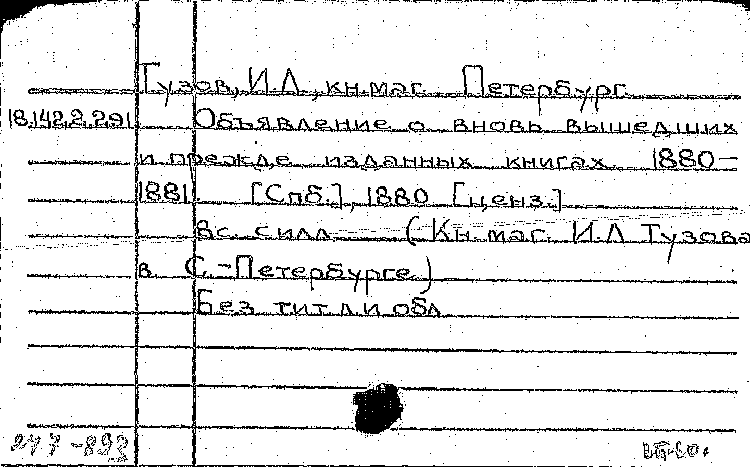 Тузов, И.Л., кн.маг. Петербург
18.142.2.291 Объявление о вновь вышедших
и прежде изданных книгах 1880-
1881. [Спб.], 1880 [ценз.]
8с. (Кн. маг. И.Л Тузова
в С.-Петербурге.)
Без тит.л. и обл.
247-893